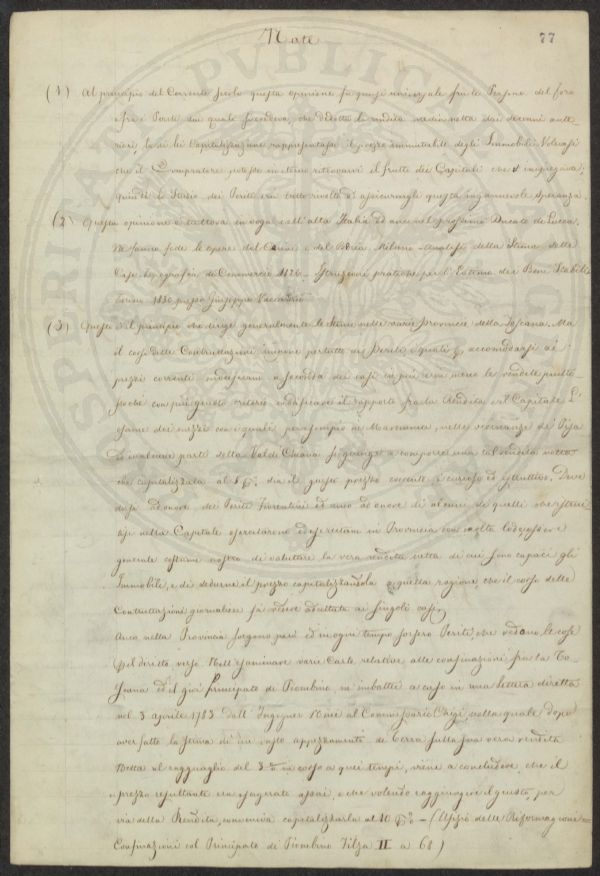 Note
77
(1) Al principio del Corrente Secolo questa opinione fu quasi universale fra le Persone del foro
e fra i Periti dai quali si credeva, che dedotta la rendita media netta dai decenni ante-
riori, la di lei Capitalizzazione rappresentasse il prezzo immutabile degli Immobili. Volevasi
che il Compratore potesse in eterno ritrovarvi il frutto dei Capitali che v'impiegava;
quindi lo Studio dei Periti era tutto rivolto ad assicurargli questa ingannevole speranza.
(2) Questa opinione è tuttora in voga nell'alta Italia ed anco nel prossimo Ducato di Lucca.
Ne fanno fede le opere del
Milano - Analisi della Stima delle
Case, tipografia di Commercio 1826 - Istruzioni pratiche per l'Estimo dei Beni Stabili
Torino 1830 presso Giuseppe
(3) Questo è il principio che dirige generalmente le Stime nelle varie Provincie della Toscana. Ma
il corso delle Contrattazioni impone per tutto ai Periti, i quali per accomodarsi ai
prezzi correnti modificano a seconda dei casi in più o in meno le rendite piutto-
sto che con più giusto criterio modificare il rapporto fra la Rendita e il Capitale. L'e-
same dei mezzi con i quali per esempio in Maremma, nelle vicinanze di Pisa
o in alcune parti della Val di Chiana si giunge a comporre una tal rendita netta
che capitalizzata al 5 p% dia il giusto prezzo corrente è curioso ed istruttivo. Deve
dirsi ad onore dei Periti Fiorentini ed anco ad onore di alcuni di quelli che istrui-
tisi nella Capitale esercitarono ed esercitano in Provincia con molta lode, essere
generale costume nostro di valutare la vera rendita netta di cui sono capaci gli
Immobili, e di dedurne il prezzo capitalizzandola a quella ragione che il corso delle
Contrattazioni giornaliere fa vedere adattata ai singoli casi.
Anco nella Provincia sorgono però ed in ogni tempo sorsero Periti, che vedono le cose
pel diritto verso. Nell'esaminare varie Carte relative alle confinazioni fra la To-
scana ed il già Principato di Piombino m'imbattei a caso in una lettera diretta
nel 3 aprile 1783 dall'Ingegner
al Commissario Chigi, nella quale dopo
aver fatto la stima di un vasto appezzamento di terra sulla sua vera rendita
netta al ragguaglio del 3 in corso a quei tempi, viene a concludere che il
prezzo resultante era esagerato assai, e che volendo raggiungere il giusto, per
via della Rendita, conveniva capitalizzarla al 10 p% - (Uffizio delle Riformagioni =
Confinazioni col Principato di Piombino Filza II a 68)